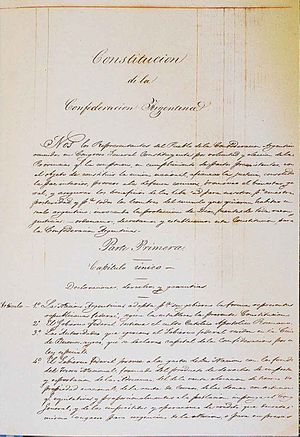 Constitucion
de la
Confederacion Argentina
Nos los Representantes del Pueblo de la Confederacion Argentina
reunidos en Congreso General Constituyente por voluntad y eleccion de las
Provincias que la componen, en cumplimiento de pactos preexistentes con
el objeto de constituir la union nacional, afianzar la justicia, consolidar
la paz interior, proveer á la defensa comun, promover el bienestar gene-
ral, y asegurar los beneficios de la libertad para nosotros, pª nuestra
posteridad y pª todos los hombres del mundo que quieran habitar en el
suelo argentino: invocando la proteccion de Dios, fuente de toda razon y
justicia: ordenamos, decretamos y establecemos esta Constitucion para
la Confederacion Argentina.
Parte Primera
Capitulo único
Declaraciones, derechos y garantias
Articulo 1º La Nacion Argentina adopta pª su gobierno la forma representativa
republicana federal, segun la establece la presente Constitucion.
2º El Gobierno Federal sostiene el culto Católico Apostólico Romano.
3º Las Autoridades que ejercen el Gobierno federal residen en la Ciudad
de Buenos Ayres, que se declara capital de la Confederacion por una
ley especial.
4º El Gobierno Federal provee á los gastos de la Nacion con los fondos
del Tesoro Nacional formado del producto de derechos de importacion
y esportacion de las Aduanas, del de la venta ó locacion de tierras de
propiedad nacional, de la renta de Correos, de las demas contribuciones